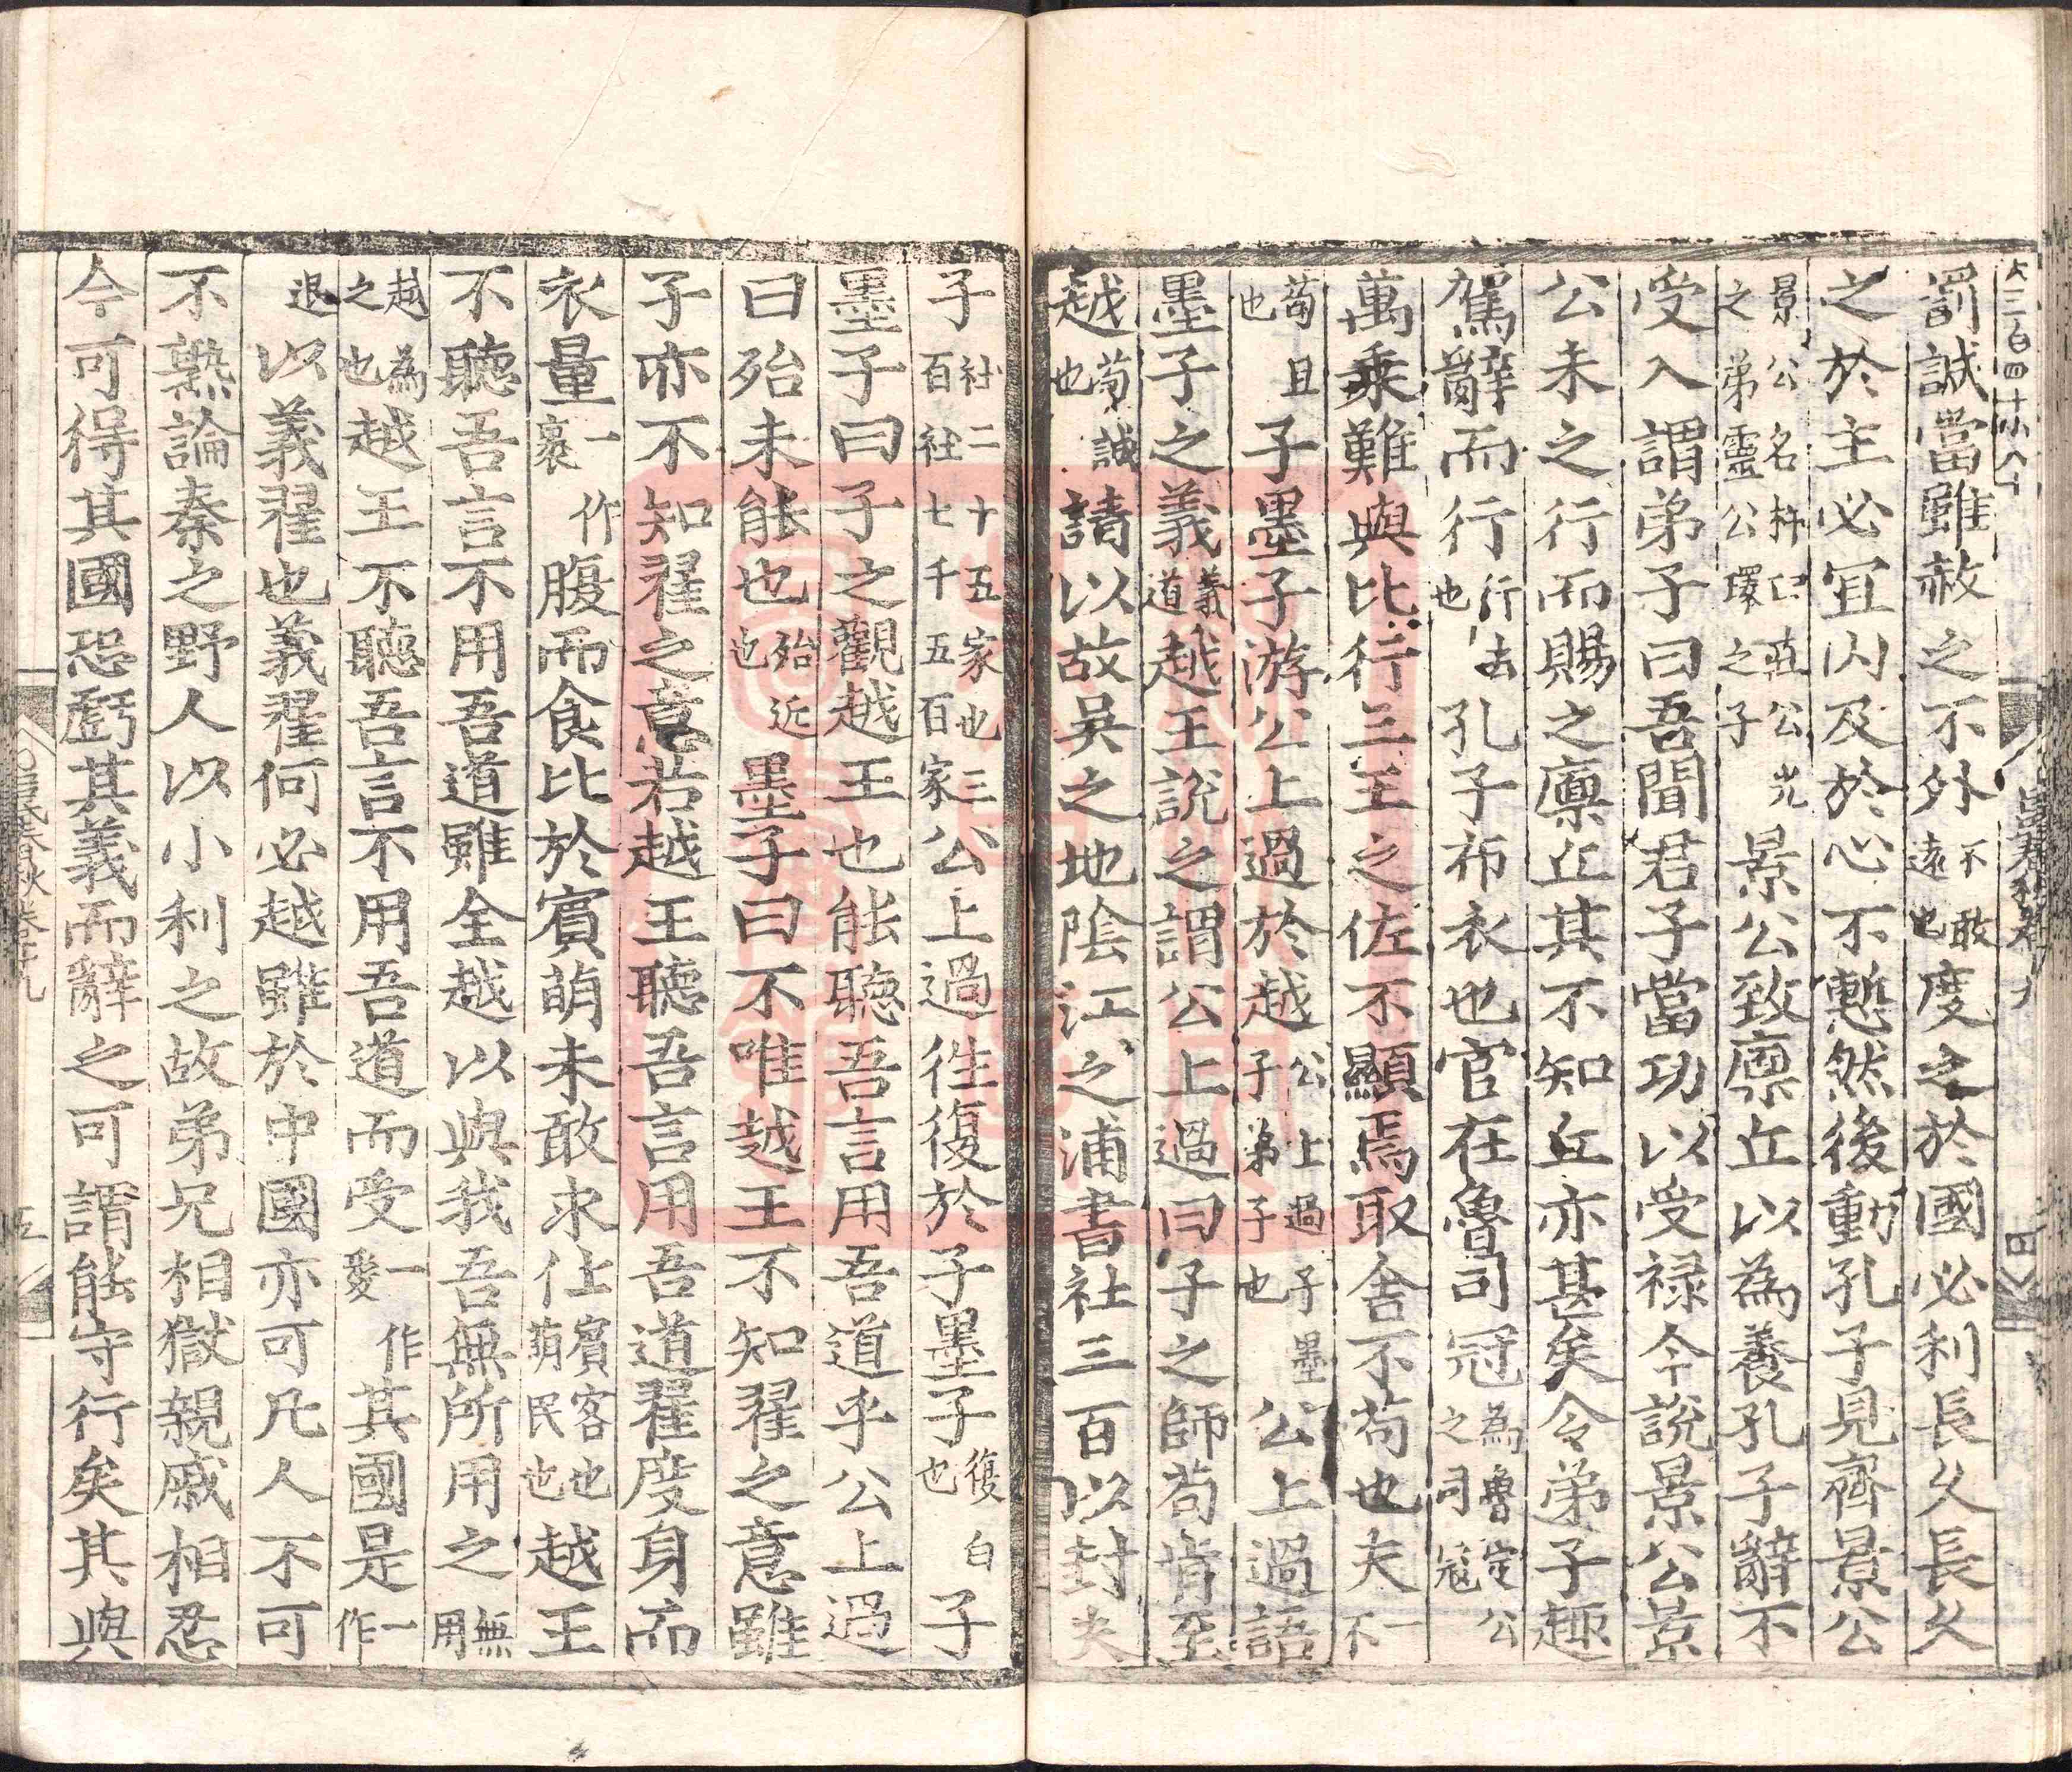 罰誠當雖赦之不外不敢遠也度之於國必利長久長久
之於主必宜內及於心不慙然後動孔子見齊景公
景公名杵臼莊公光之弟靈公環之子景公致廩丘以為養孔子辭不
受入謂弟子曰吾聞君子當功以受祿今說景公景
公未之行而賜之廩丘其不知丘亦甚矣令弟子趣
駕辭而行行去也孔子布衣也官在魯司冦為魯定公之司寇
萬乘難與比行三王之佐不顯焉取舍不苟也夫一不
苟且也子墨子游公上過於越公上過子墨子弟子也公上過語
墨子之義義道越王說之謂公上過曰子之師苟肯至
越苟誠也請以故吳之地陰江之浦書社三百以封夫
子社二十五家也三百社七千五百家公上過往復於子墨子復白也子
墨子曰子之觀越王也能聽吾言用吾道乎公上過
曰殆未能也殆近也墨子曰不唯越王不知翟之意雖
子亦不知翟之意若越王聽吾言用吾道翟度身而
衣量一作裹腹而食比於賓萌未敢求仕賓客也萌民也越王
不聽吾言不用吾道雖全越以與我吾無所用之無用
越為之也越王不聽吾言不用吾道而受一作愛其國是一作
退以義翟也義翟何必越雖於中國亦可凡人不可
不熟論秦之野人以小利之故弟兄相獄親戚相忍
今可得其國恐虧其義而辭之可謂能守行矣其與
呂氏春秋卷十九
五